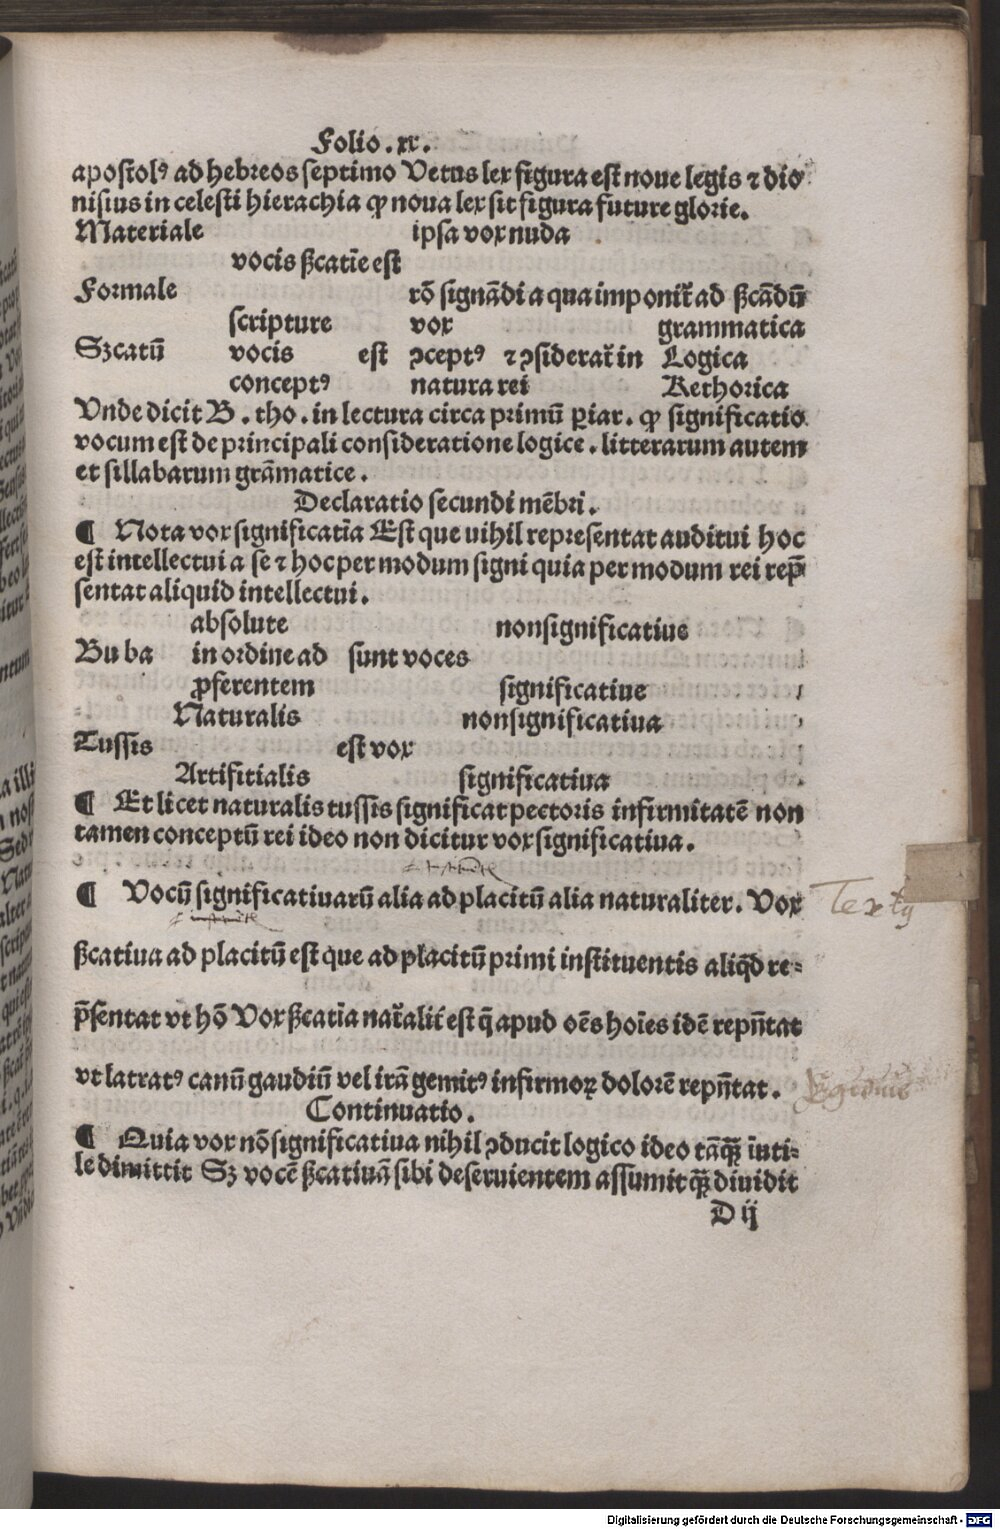 Folio.xx.
apostolꝰ ad hebreos septimo Vetus lex figura est noue legis ⁊ dio
nisius in celesti hierachia ꝙ noua lex sit figura future glorie.
Materiale ipsa vox nuda
vocis ßcatĩe est
Formale rõ signãdi a qua imponit᷑ ad ßcãdũ
scripture vox grammatica
Szcatũ vocis est ↄceptꝰ ⁊ ↄsiderat᷑ in Logica
conceptꝰ natura rei Rethorica
Vnde dicit B. tho. in lectura circa primũ ꝑiar. ꝙ significatio
vocum est de principali consideratione logice. litterarum autem
et sillabarum grãmatice.
Declaratio secundi mẽbri.
¶ Nota vox significatĩa Est que uihil representat auditui hoc
est intellectui a se ⁊ hoc per modum signi quia per modum rei rep̃
sentat aliquid intellectui.
absolute nonsignificatiue
Bu ba in ordine ad sunt voces
ꝓferentem significatiue
Naturalis nonsignificatiua
Tussis est vox
Artifitialis significatiua
¶ Et licet naturalis tussis significat pectoris infirmitatẽ non
tamen conceptũ rei ideo non dicitur vox significatiua.
¶ Vocũ significatiuarũ alia ad placitũ alia naturaliter. Vox
Textꝰ
ßcatiua ad placitũ est que ad placitũ primi instituentis aliq̃d re-
p̃sentat vt hõ Vox ßcatĩa nat᷑alit᷑ est q̃ apud oẽs hoĩes idẽ repñtat
vt latratꝰ canũ gaudiũ vel irã gemitꝰ infirmoꝝ dolorẽ repñtat.
Continuatio.
¶ Quia vox nõ significatiua nihil ↄducit logico ideo tãꝗ̃ ĩuti-
le dimittit Sz vocẽ ßcatiuã sibi deseruientem assumit ꝗ̃ diuidit
D ij
Digitalisierung gefördert durch die Deutsche Forschungsgemeinschaft - DFG